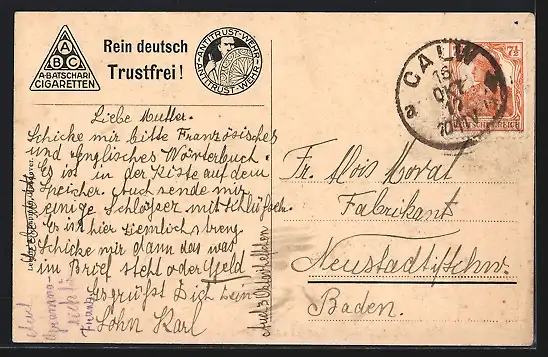 ABC
A-BATSCHARI
CIGARETTEN
Rein deutsch
Trustfrei!
ANTITRUST-WEHR
ANTITRUST-WEHR
Liebe Mutter.
Schicke mir bitte Französisches
und Englisches Wörterbuch.
Es ist in der Kiste auf dem
Speicher. Auch sende mir
einige Schlösser mit Schlüsseln.
Es ist hier ziemlich streng
Schicke mir dann das was
im Brief steht oder Geld
Es grüßt Dich Dein
Sohn Karl
CALW
16
OKT
a
7½
DEUTSCHES REICH
Fr. Alois Morat
Fabrikant
Neustadt i/Schw.
Baden.